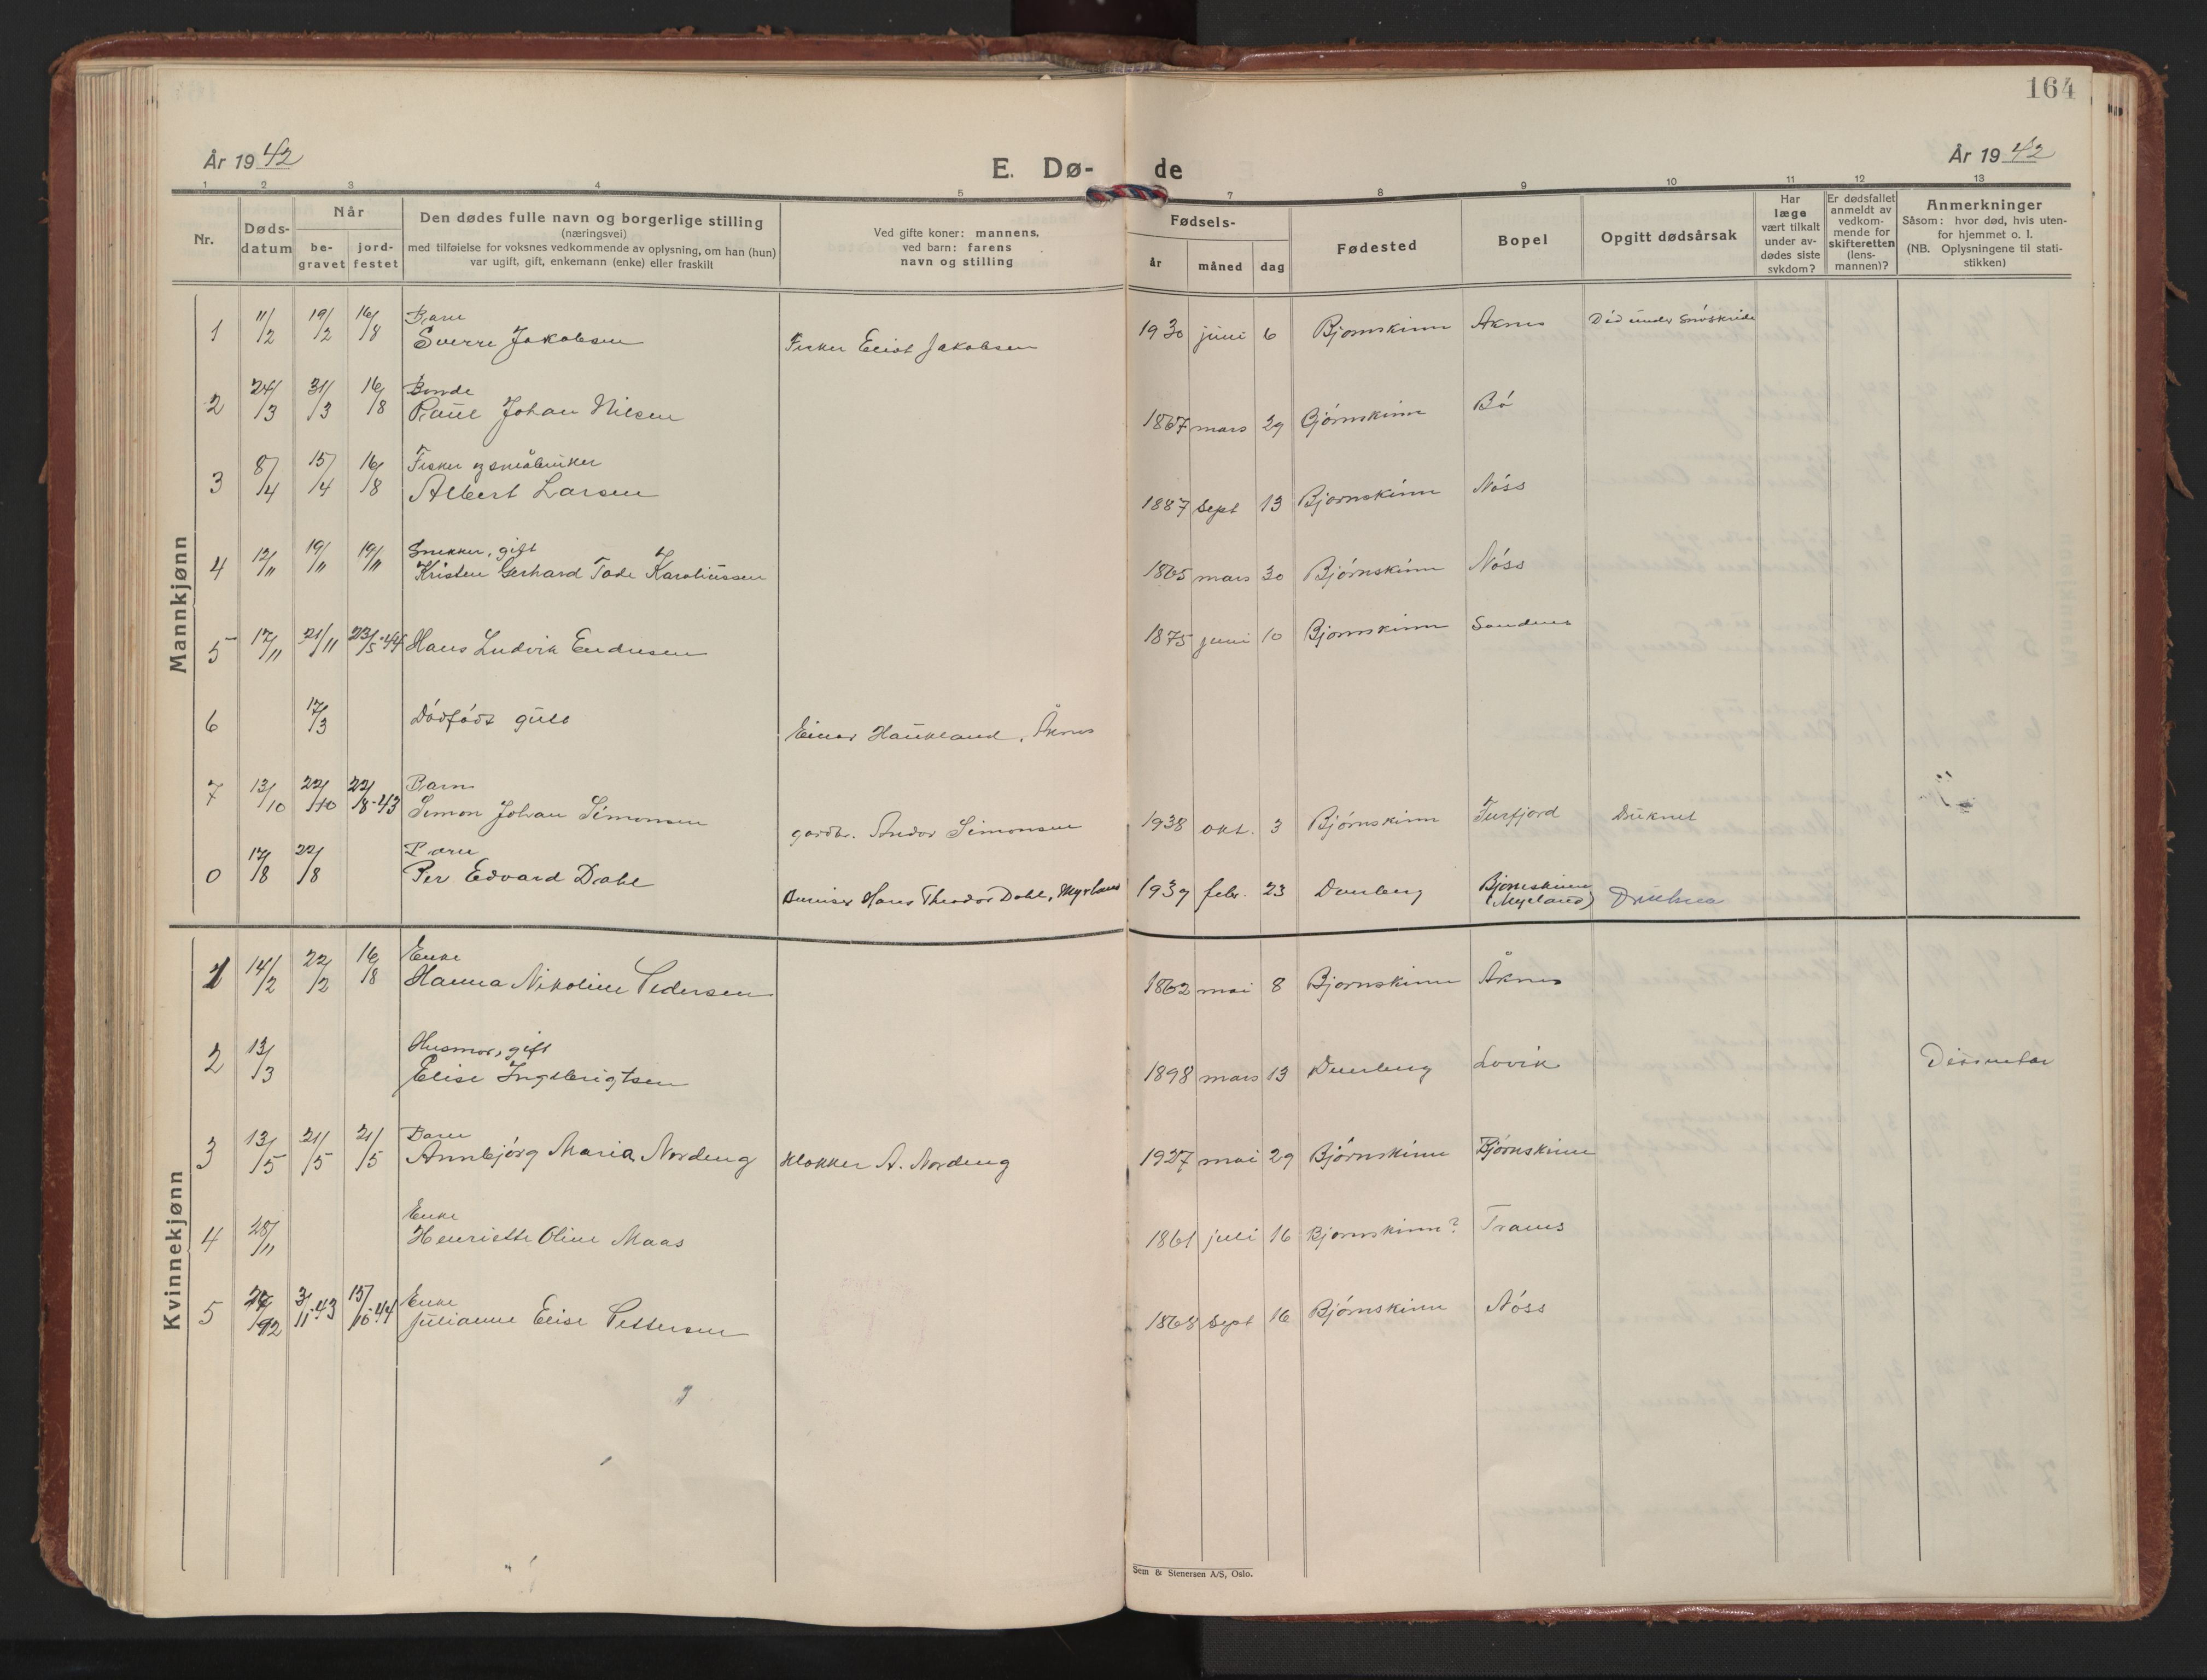 164
År 1942
E. Dø-
de
År 1942
1 2 3 4 5 7 8 9 10 11 12 13
Nr.
Døds-
datum
Når
be-
gravet
jord-
festet
Den dødes fulle navn og borgerlige stilling
(næringsvei)
med tilføielse for voksnes vedkommende av oplysning, om han (hun)
var ugift, gift, enkemann (enke) eller fraskilt
Ved gifte koner: mannens,
ved barn: farens
navn og stilling
Fødsels-
år måned dag
Fødested
Bopel
Opgitt dødsårsak
Har
læge
vært tilkalt
under av-
dødes siste
sykdom?
Er dødsfallet
anmeldt av
vedkom-
mende for
skifteretten
(lens-
mannen)?
Anmerkninger
Såsom: hvor død, hvis uten-
for hjemmet o. l.
(NB. Oplysningene til stati-
stikken)
Mannkjønn
Barn
1 11/2 19/2 16/8 Sverre Jakobsen Fisker Eliot Jakobsen 1930 juni 6 Bjornskinn Åknes Död under Snöskride
Bonde
2 24/3 31/3 16/8 Paul Johan Nilsen 1867 mars 29 Bjórnskinn Bó
Fisker og småbruker
3 8/4 15/4 16/8 Albert Larsen 1887 Sept 13 Bjornskinn Nóss
Snekker, gift
4 12/11 19/11 19/11 Kristen Gerhard Tode Karoliussen 1865 mars 30 Bjórnskinn Nóss
5 17/11 21/11 23/5-44 Hans Ludvik Endresen 1875 juni 10 Bjornskinn Sandnes
6 17/3 Dódfódt gutt Einar Haukland, Åknes
Barn
7 13/10 22/10 22/8-43 Simon Johan Simonsen gardbr. Andor Simonsen 1938 okt. 3 Bjórnskinn Furfjord Druknet
Barn
0 17/8 22/8 Per Edvard Dahl Hans Theodor Dahl, Myrland 1939 febr. 23 Dverberg Bjornskinn
(Myrland) Drukna
Kvinnekjønn
Enke
1 14/2 22/2 16/8 Hanna Nikoline Pedersen 1862 mai 8 Bjornskinn Åknes
Husmor, gift
2 13/3 Elise Ingebrigtsen 1898 mars 13 Dverberg Lovik Dissenter
Barn
3 13/5 21/5 21/5 Annbjórg Maria Nordeng Klokker A. Nordeng 1927 mai 29 Bjórnskinn Bjórnskinn
Enke
4 28/11 Henriette Oline Maas 1861 juli 16 Bjornskinn? Trams
Enke
5 3/11-43 15/10-44 Julianne Elise Pettersen 1868 Sept 16 Bjórnskinn Nóss
Sem & Stenersen A/S, Oslo.